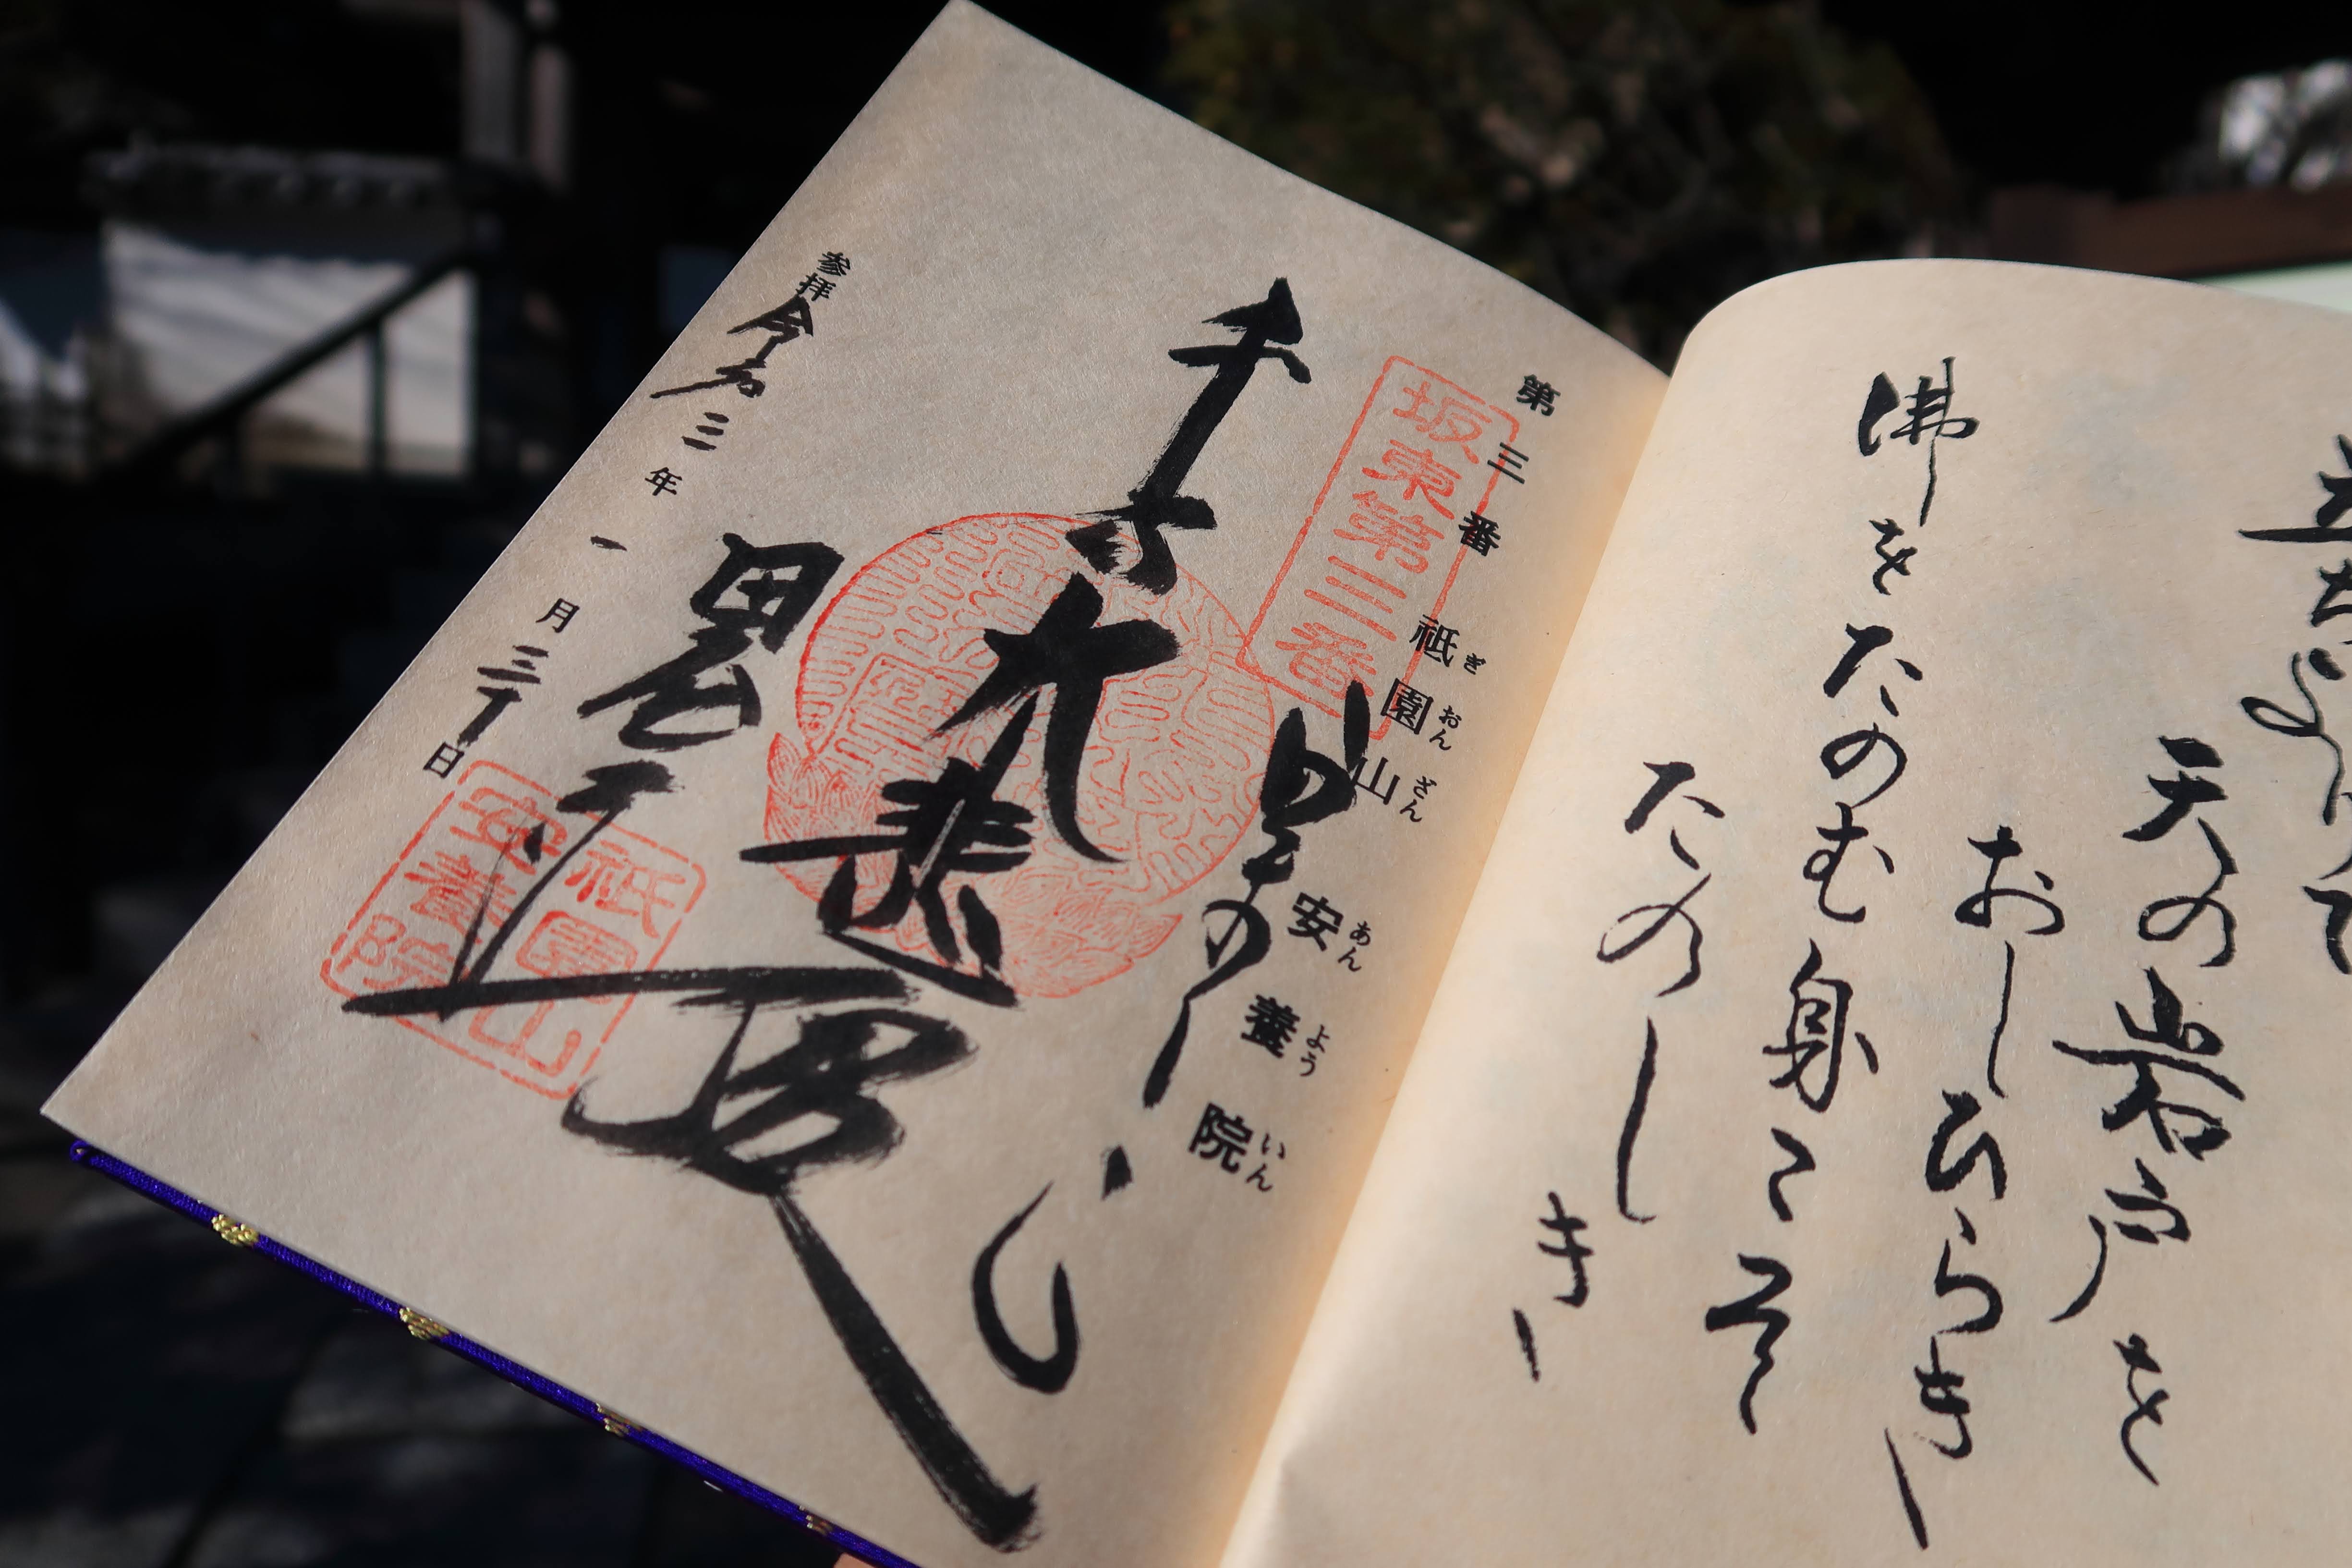 立ちよりて
天の岩戸を
おしひらき
佛をたのむ身こそ
たのしき
第三番 祇園山 安養院
ぎおんざん あんよういん
坂東第三番
大悲
参拝令和三年一月三十日
祇園山
安養院